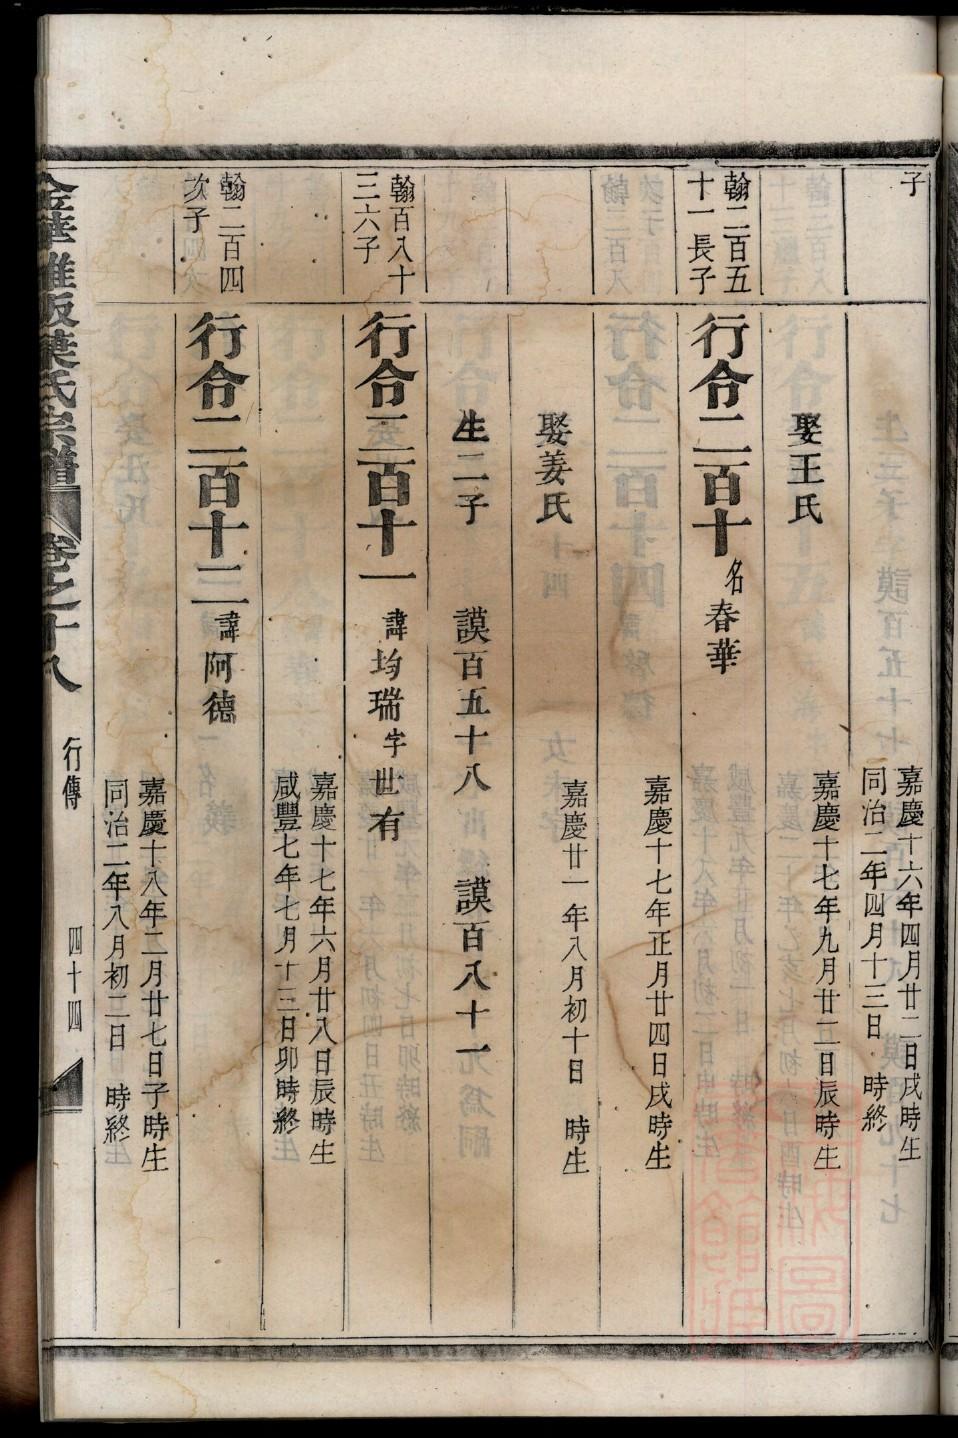 子
嘉慶十六年四月廿二日戌時生
同治二年四月十三日 時終
娶王氏
嘉慶十七年九月廿二日辰時生
翰二百五
十一長子
行令二百十 名春華
嘉慶十七年正月廿四日戌時生
娶姜氏
嘉慶廿一年八月初十日 時生
生二子 謨百五十八 謨百八十一
翰百八十
三六子
行令二百十一 諱均瑞字世有
嘉慶十七年六月廿八日辰時生
咸豐七年七月十三日卯時終
翰二百四
次子
行令二百十二 諱阿德
嘉慶十八年二月廿七日子時生
同治二年八月初二日 時終
葉氏宗譜 卷之十八 行傳 四十四